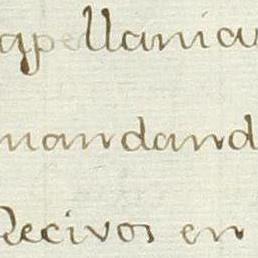 apellania
mandand
Recivos en